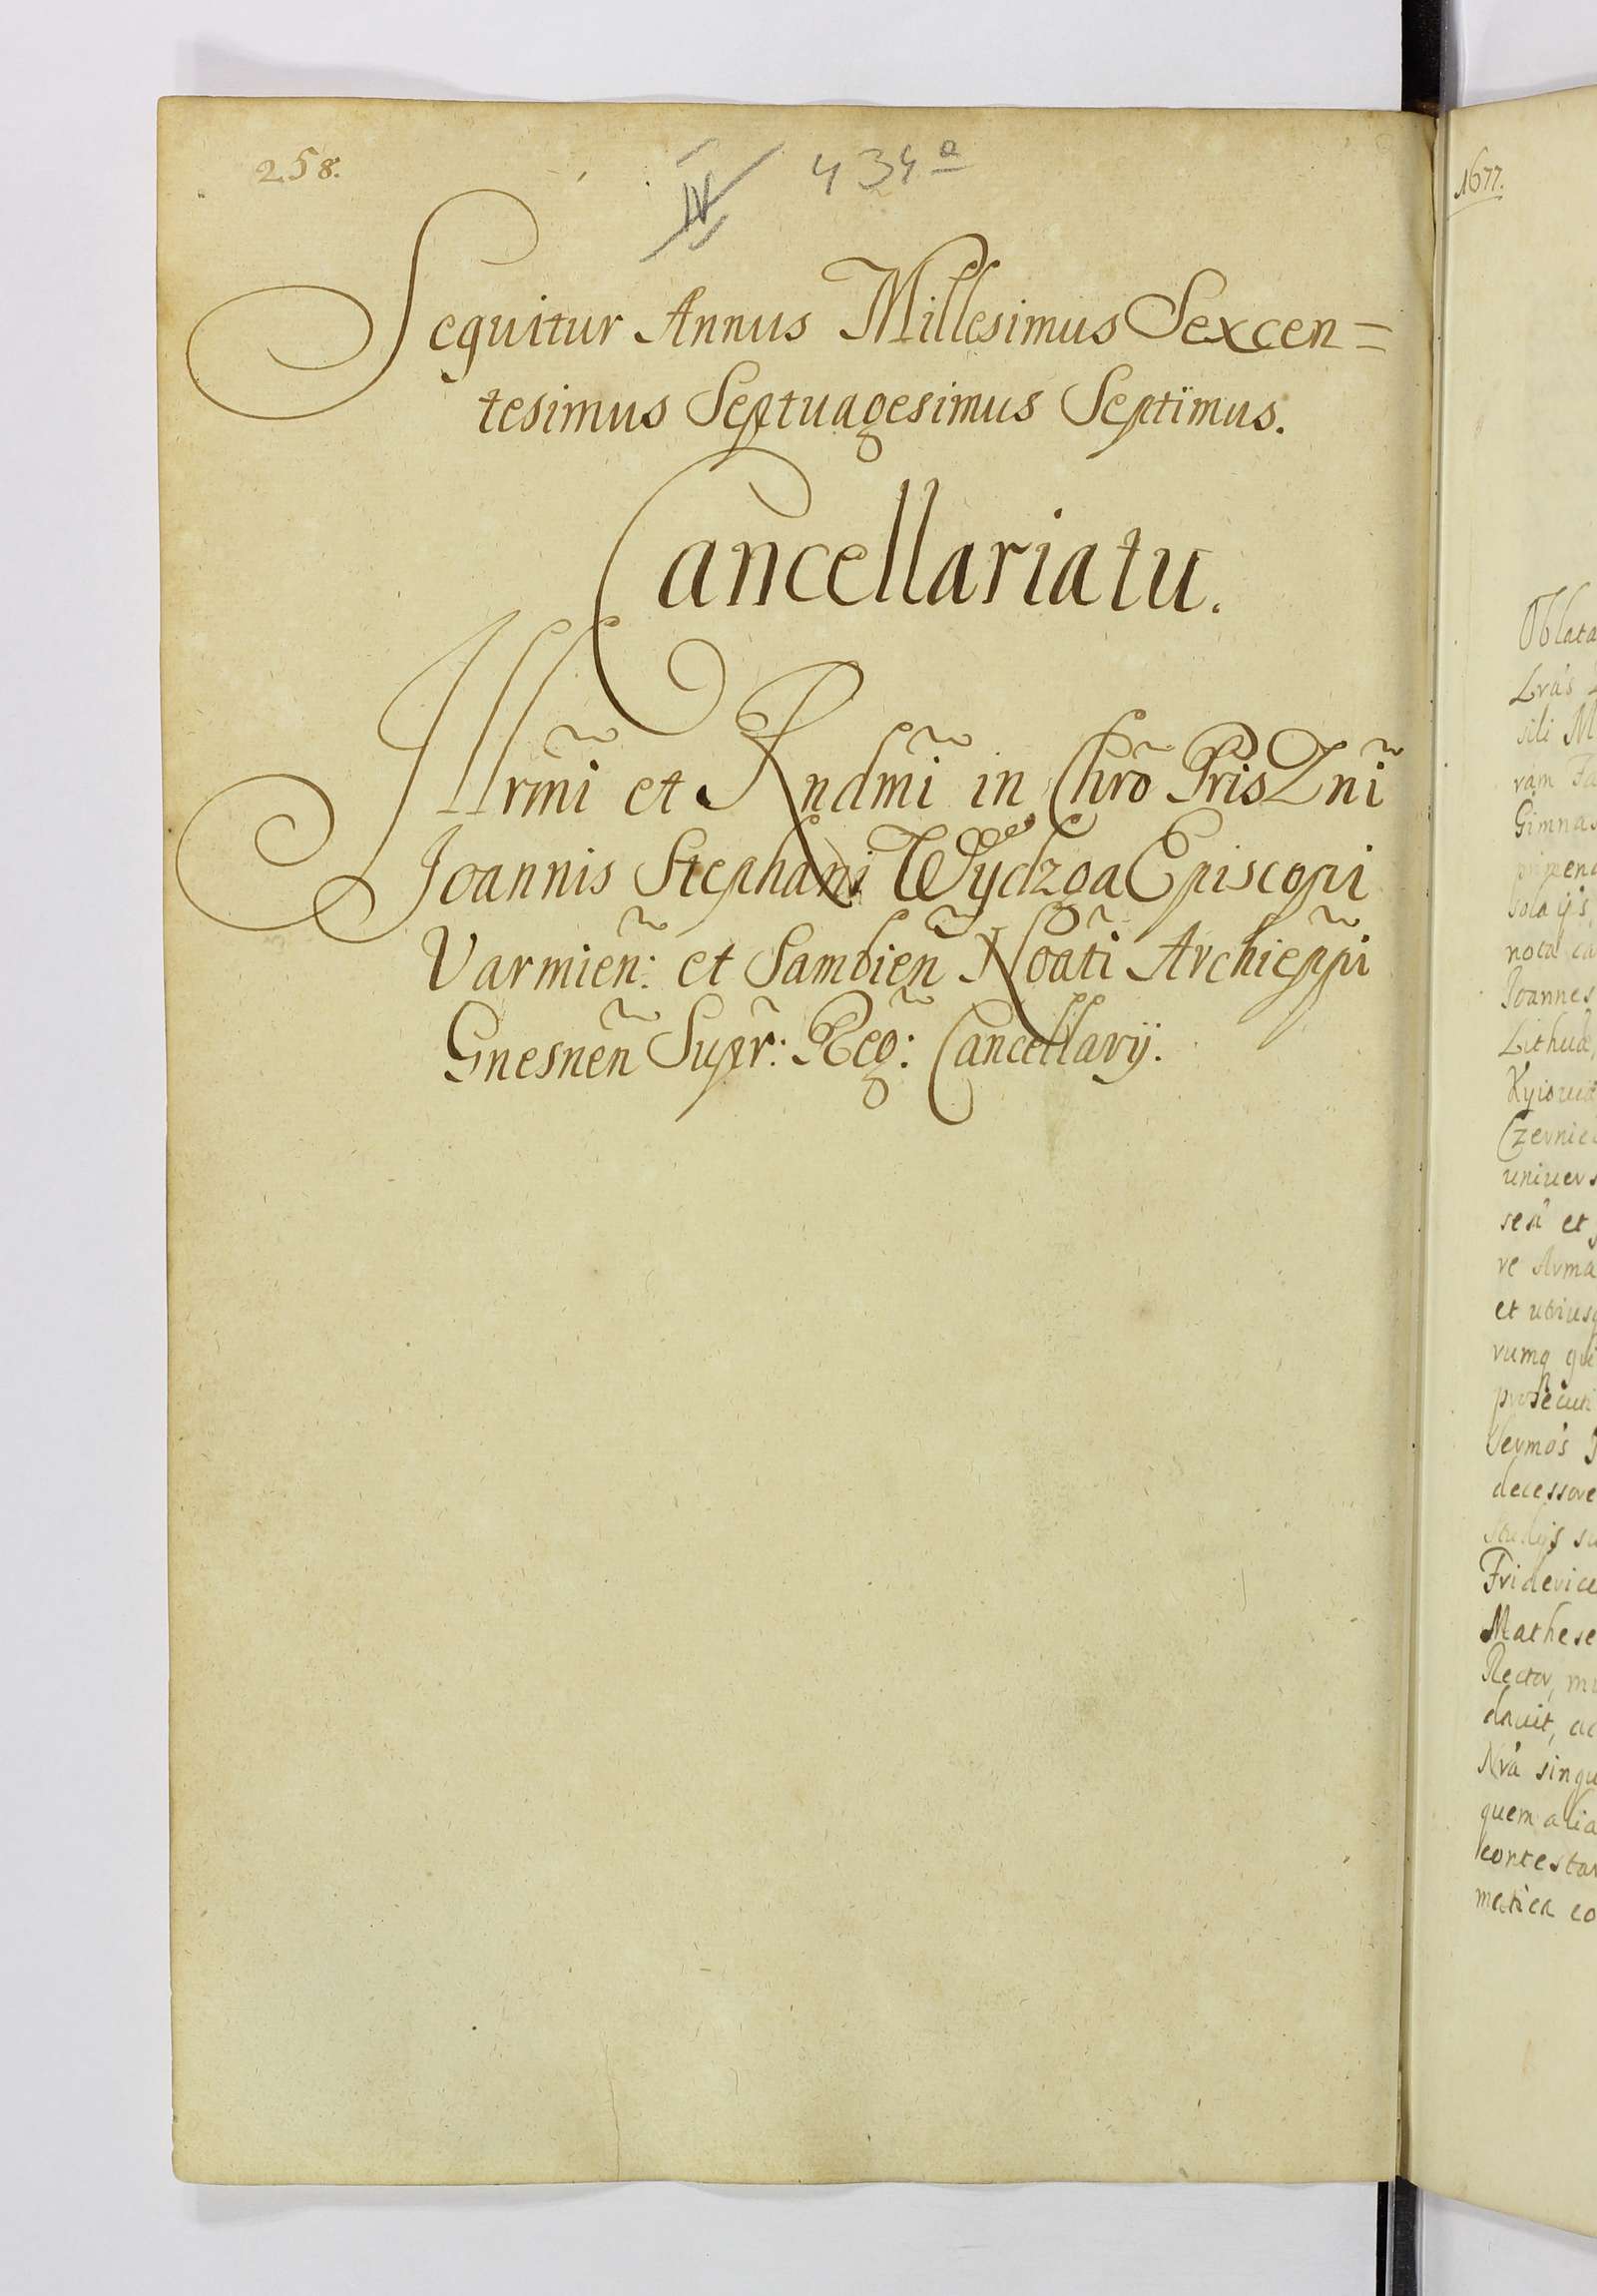 258.
IV 434a
Sequitur Annus Millesimus Sexcen=
tesimus Septuagesimus Septimus.
Cancellariatu.
Illrmĩ et Rndmĩ in Chrõ Pris Dnĩ
Joannis Stephani Wydzga Episcopi
Varmieñ: et Sambieñ Noãti Archieppĩ
Gnesneñ Supr̃: Reg̃: Cancellarij.
1677.
Oblata
Lrãs
sili M
ram Fa
Gimnas
sola ijs
nota ca
Joannes
Lithuã,
Kyiouiã
Czernie
uniuers
seã et
re Arma
et utiusq
rumq qui
prosecuti
Sermõs
decessore
studijs su
Friderice
Mathese
Rector, mi
dauit, ac
Nrã singu
quem alia
contestar
matica co